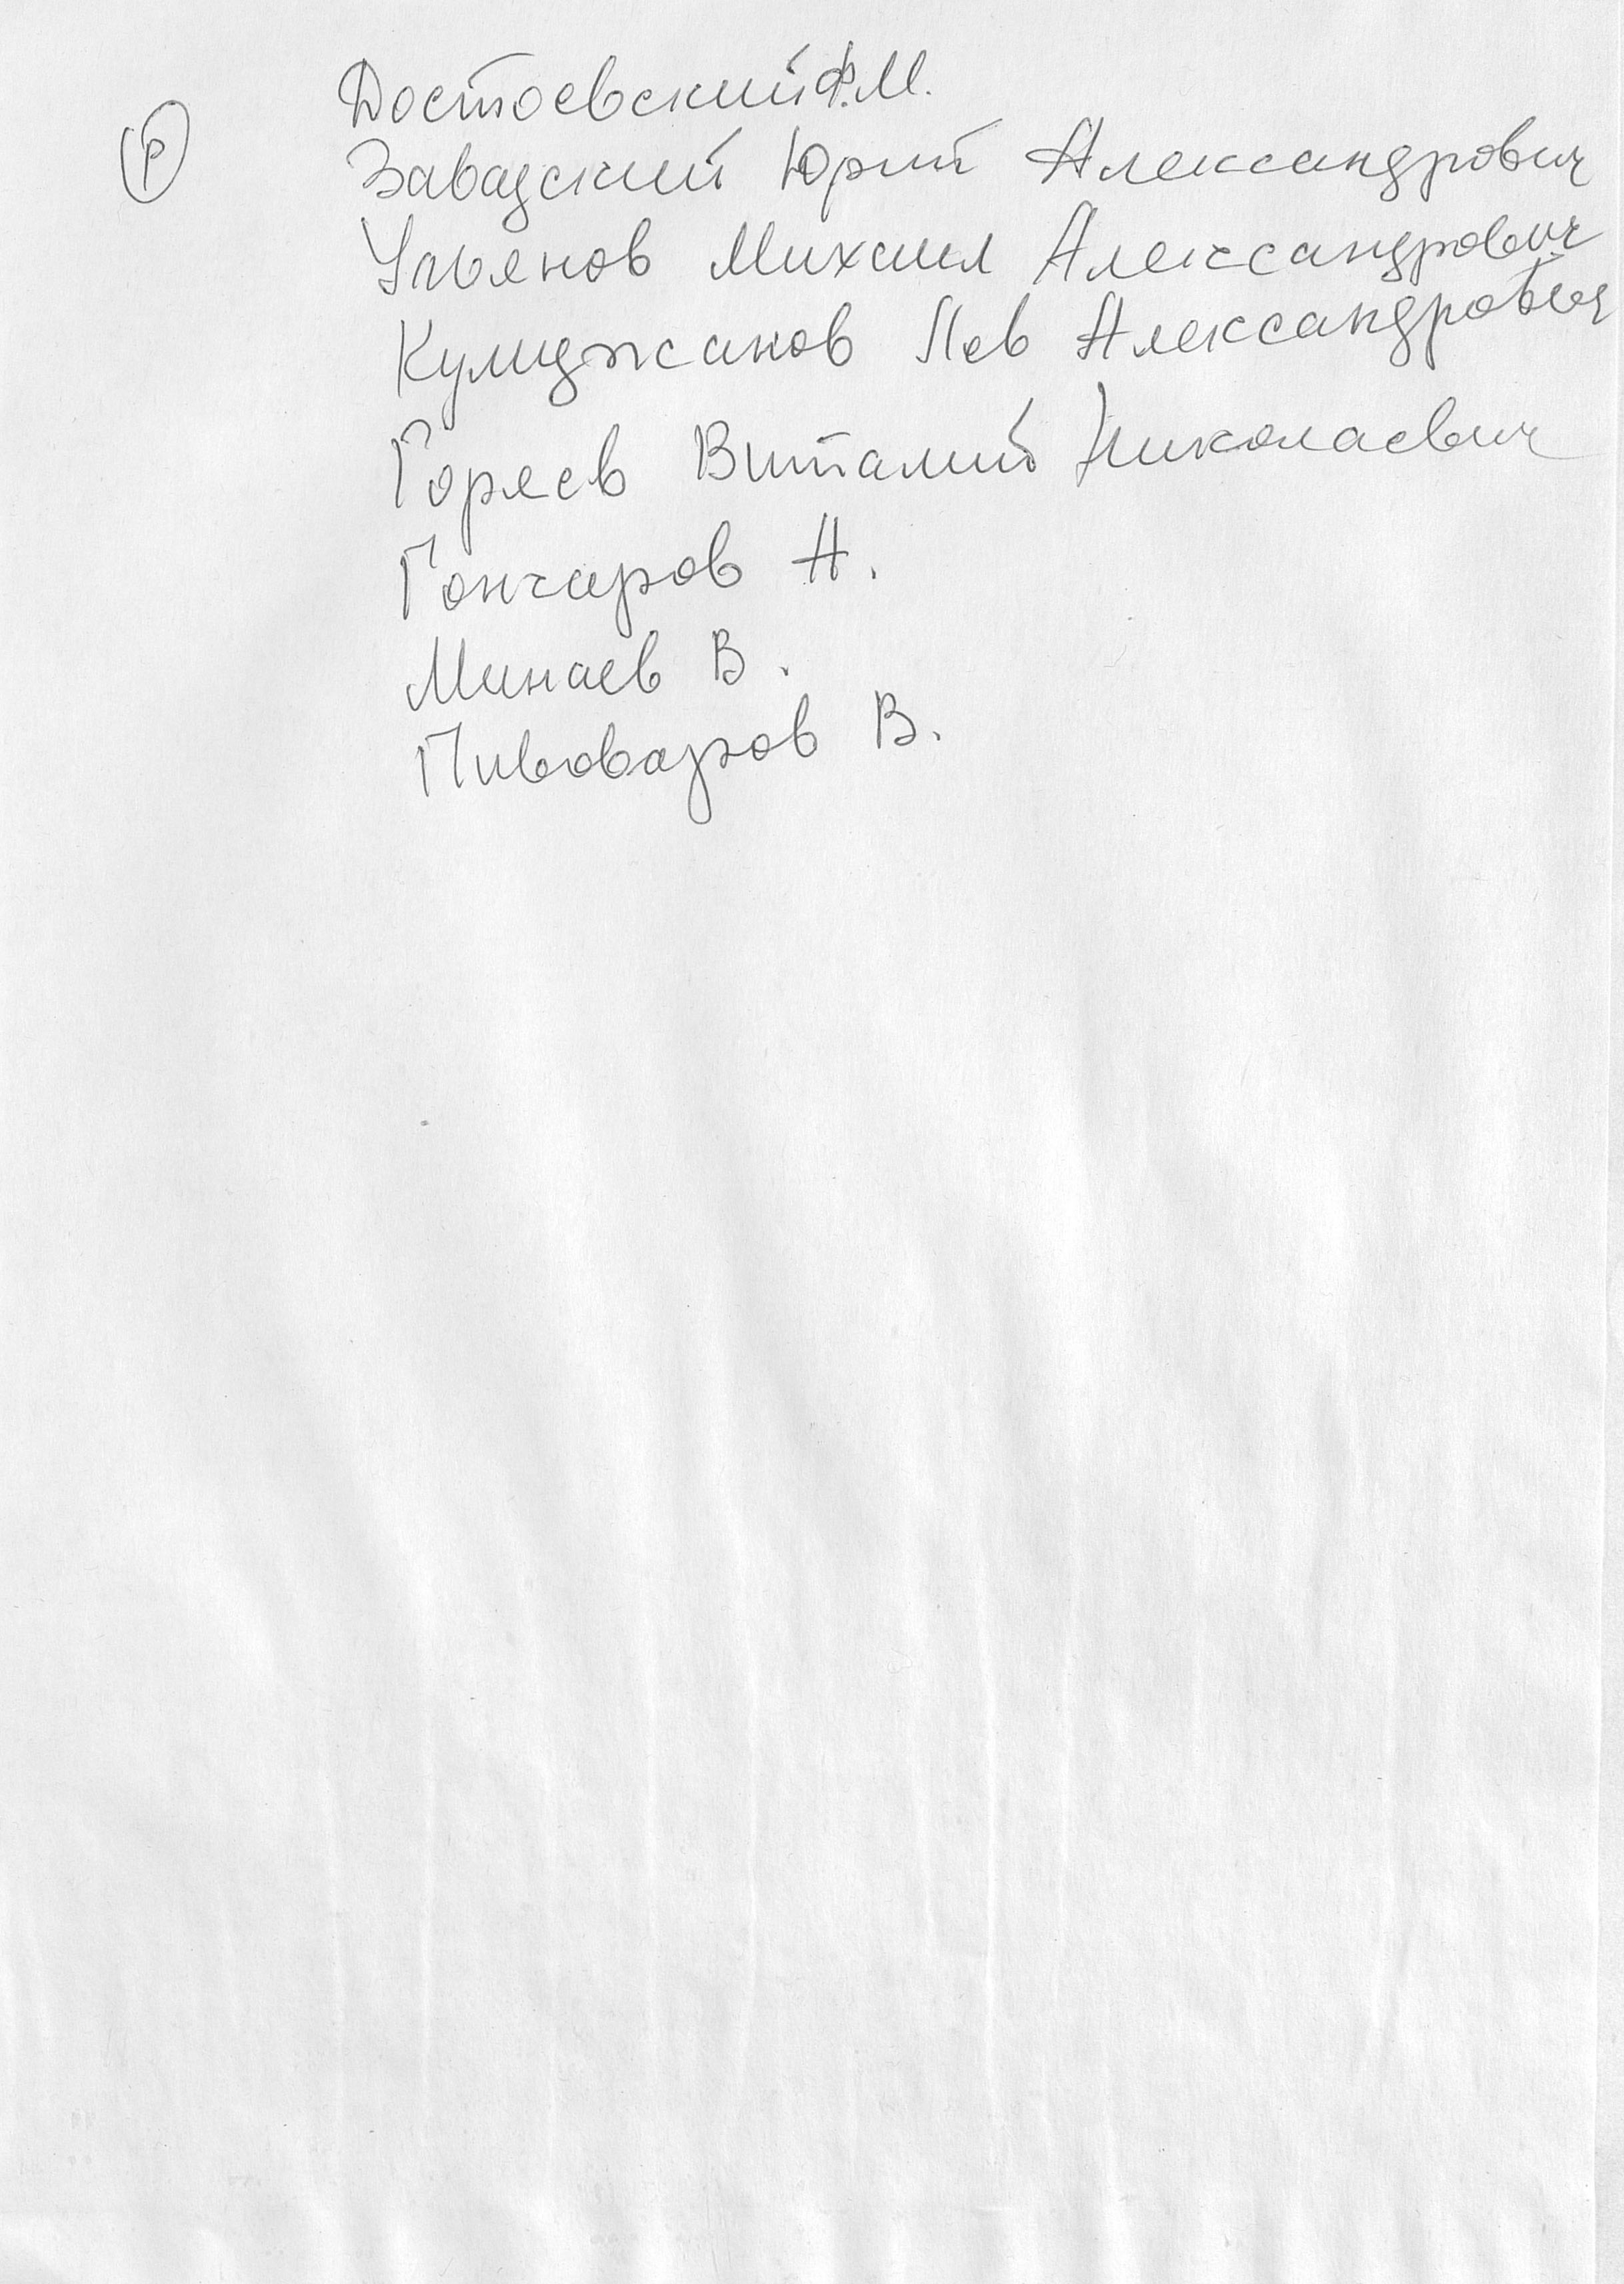 Достоевский Ф.М.
Р Завадский Юрий Александрович
Ульянов Михаил Александрович
Кулиджанов Лев Александрович
Горяев Виталий Николаевич
Гончаров А.
Минаев В.
Пивоваров В.